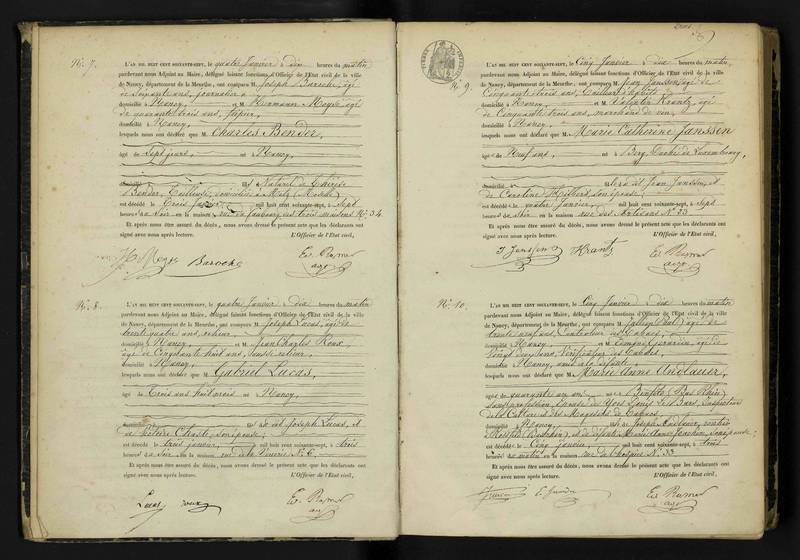 N° 7.
L'AN MIL HUIT CENT SOIXANTE-SEPT, le quatre Janvier à dix heures du matin
pardevant nous Adjoint au Maire, délégué faisant fonctions d'Officier de l'Etat civil de la ville
de Nancy, département de la Meurthe, ont comparu M. Joseph Baroche, âgé
de soixante ans, journalier
domicilié à Nancy, et M. Hermann Moyse âgé
de quarante trois ans,
domicilié à Nancy,
lesquels nous ont déclaré que M. Charles Bender,
âgé de Sept jours, né à Nancy,
domicilié
Bender, domiciliée à Metz (Moselle)
est décédé le Trois Janvier mil huit cent soixante-sept, à Sept
heures du soir en la maison rue du faubourg des trois maisons N° 34
Et après nous être assuré du décès, nous avons dressé le présent acte que les déclarants
ont signé avec nous après lecture. L'Officier de l'Etat civil,
Baroche
N° 8.
L'AN MIL HUIT CENT SOIXANTE-SEPT, le quatre Janvier à dix heures du matin
pardevant nous Adjoint au Maire, délégué faisant fonctions d'Officier de l'Etat civil de la ville
de Nancy, département de la Meurthe, ont comparu M. Joseph Lucas, âgé de
trente quatre ans,
domicilié à Nancy, et M. Jean Charles Roux,
âgé de Cinquante huit ans,
domicilié à Nancy,
lesquels nous ont déclaré que M. Gabriel Lucas,
âgé de Trois ans huit mois né à Nancy,
Joseph Lucas, et
de Victoire son épouse;
est décédé le trois Janvier mil huit cent soixante-sept, à trois
heures du soir en la maison rue N° 6
Et après nous être assuré du décès, nous avons dressé le présent acte que les déclarants ont
signé avec nous après lecture. L'Officier de l'Etat civil,
Lucas roux
N° 9.
L'AN MIL HUIT CENT SOIXANTE-SEPT, le Cinq Janvier à dix heures du matin,
pardevant nous Adjoint au Maire, délégué faisant fonctions d'Officier de l'Etat civil de la ville
de Nancy, département de la Meurthe, ont comparu M. Jean Janssen, âgé de
Cinquante trois ans,
domicilié à Nancy, et M. Krantz, âgé
de Cinquante trois ans, marchand de vin,
domicilié à Nancy,
lesquels nous ont déclaré que M. Marie Catherine Janssen
âgée de Neuf ans, née à Berg, Duché de Luxembourg,
domiciliée dit Jean Janssen, et
de Caroline Hilbert, son épouse
est décédée le quatre Janvier, mil huit cent soixante-sept, à sept
heures du soir en la maison rue des Artisans N° 23
Et après nous être assuré du décès, nous avons dressé le présent acte que les déclarants ont
signé avec nous après lecture. L'Officier de l'Etat civil,
J Janssen Krantz
N° 10.
L'AN MIL HUIT CENT SOIXANTE-SEPT, le Cinq Janvier à dix heures du matin
pardevant nous Adjoint au Maire, délégué faisant fonctions d'Officier de l'Etat civil de la ville
de Nancy, département de la Meurthe, ont comparu M. (Paul) âgé de
trente neuf ans, Contrôleur des Tabacs,
domicilié à Nancy, et M. Edmond âgé de
Vingt cinq ans, Vérificateur des Tabacs,
domicilié à Nancy, amis de la défunte
lesquels nous ont déclaré que M. Marie Anne Andlauer,
âgée de quarante un an née à Benfeld (Bas Rhin)
sans profession, épouse de Yves Louis de Bars, Inspecteur
de la Culture et des Magasins de Tabacs,
domiciliée à Nancy, Joseph Andlauer,
son épouse;
est décédée le Cinq Janvier mil huit cent soixante-sept, à trois
heures du matin en la maison rue de l'hospice N° 33
Et après nous être assuré du décès, nous avons dressé le présent acte que les déclarants ont
signé avec nous après lecture. L'Officier de l'Etat civil,